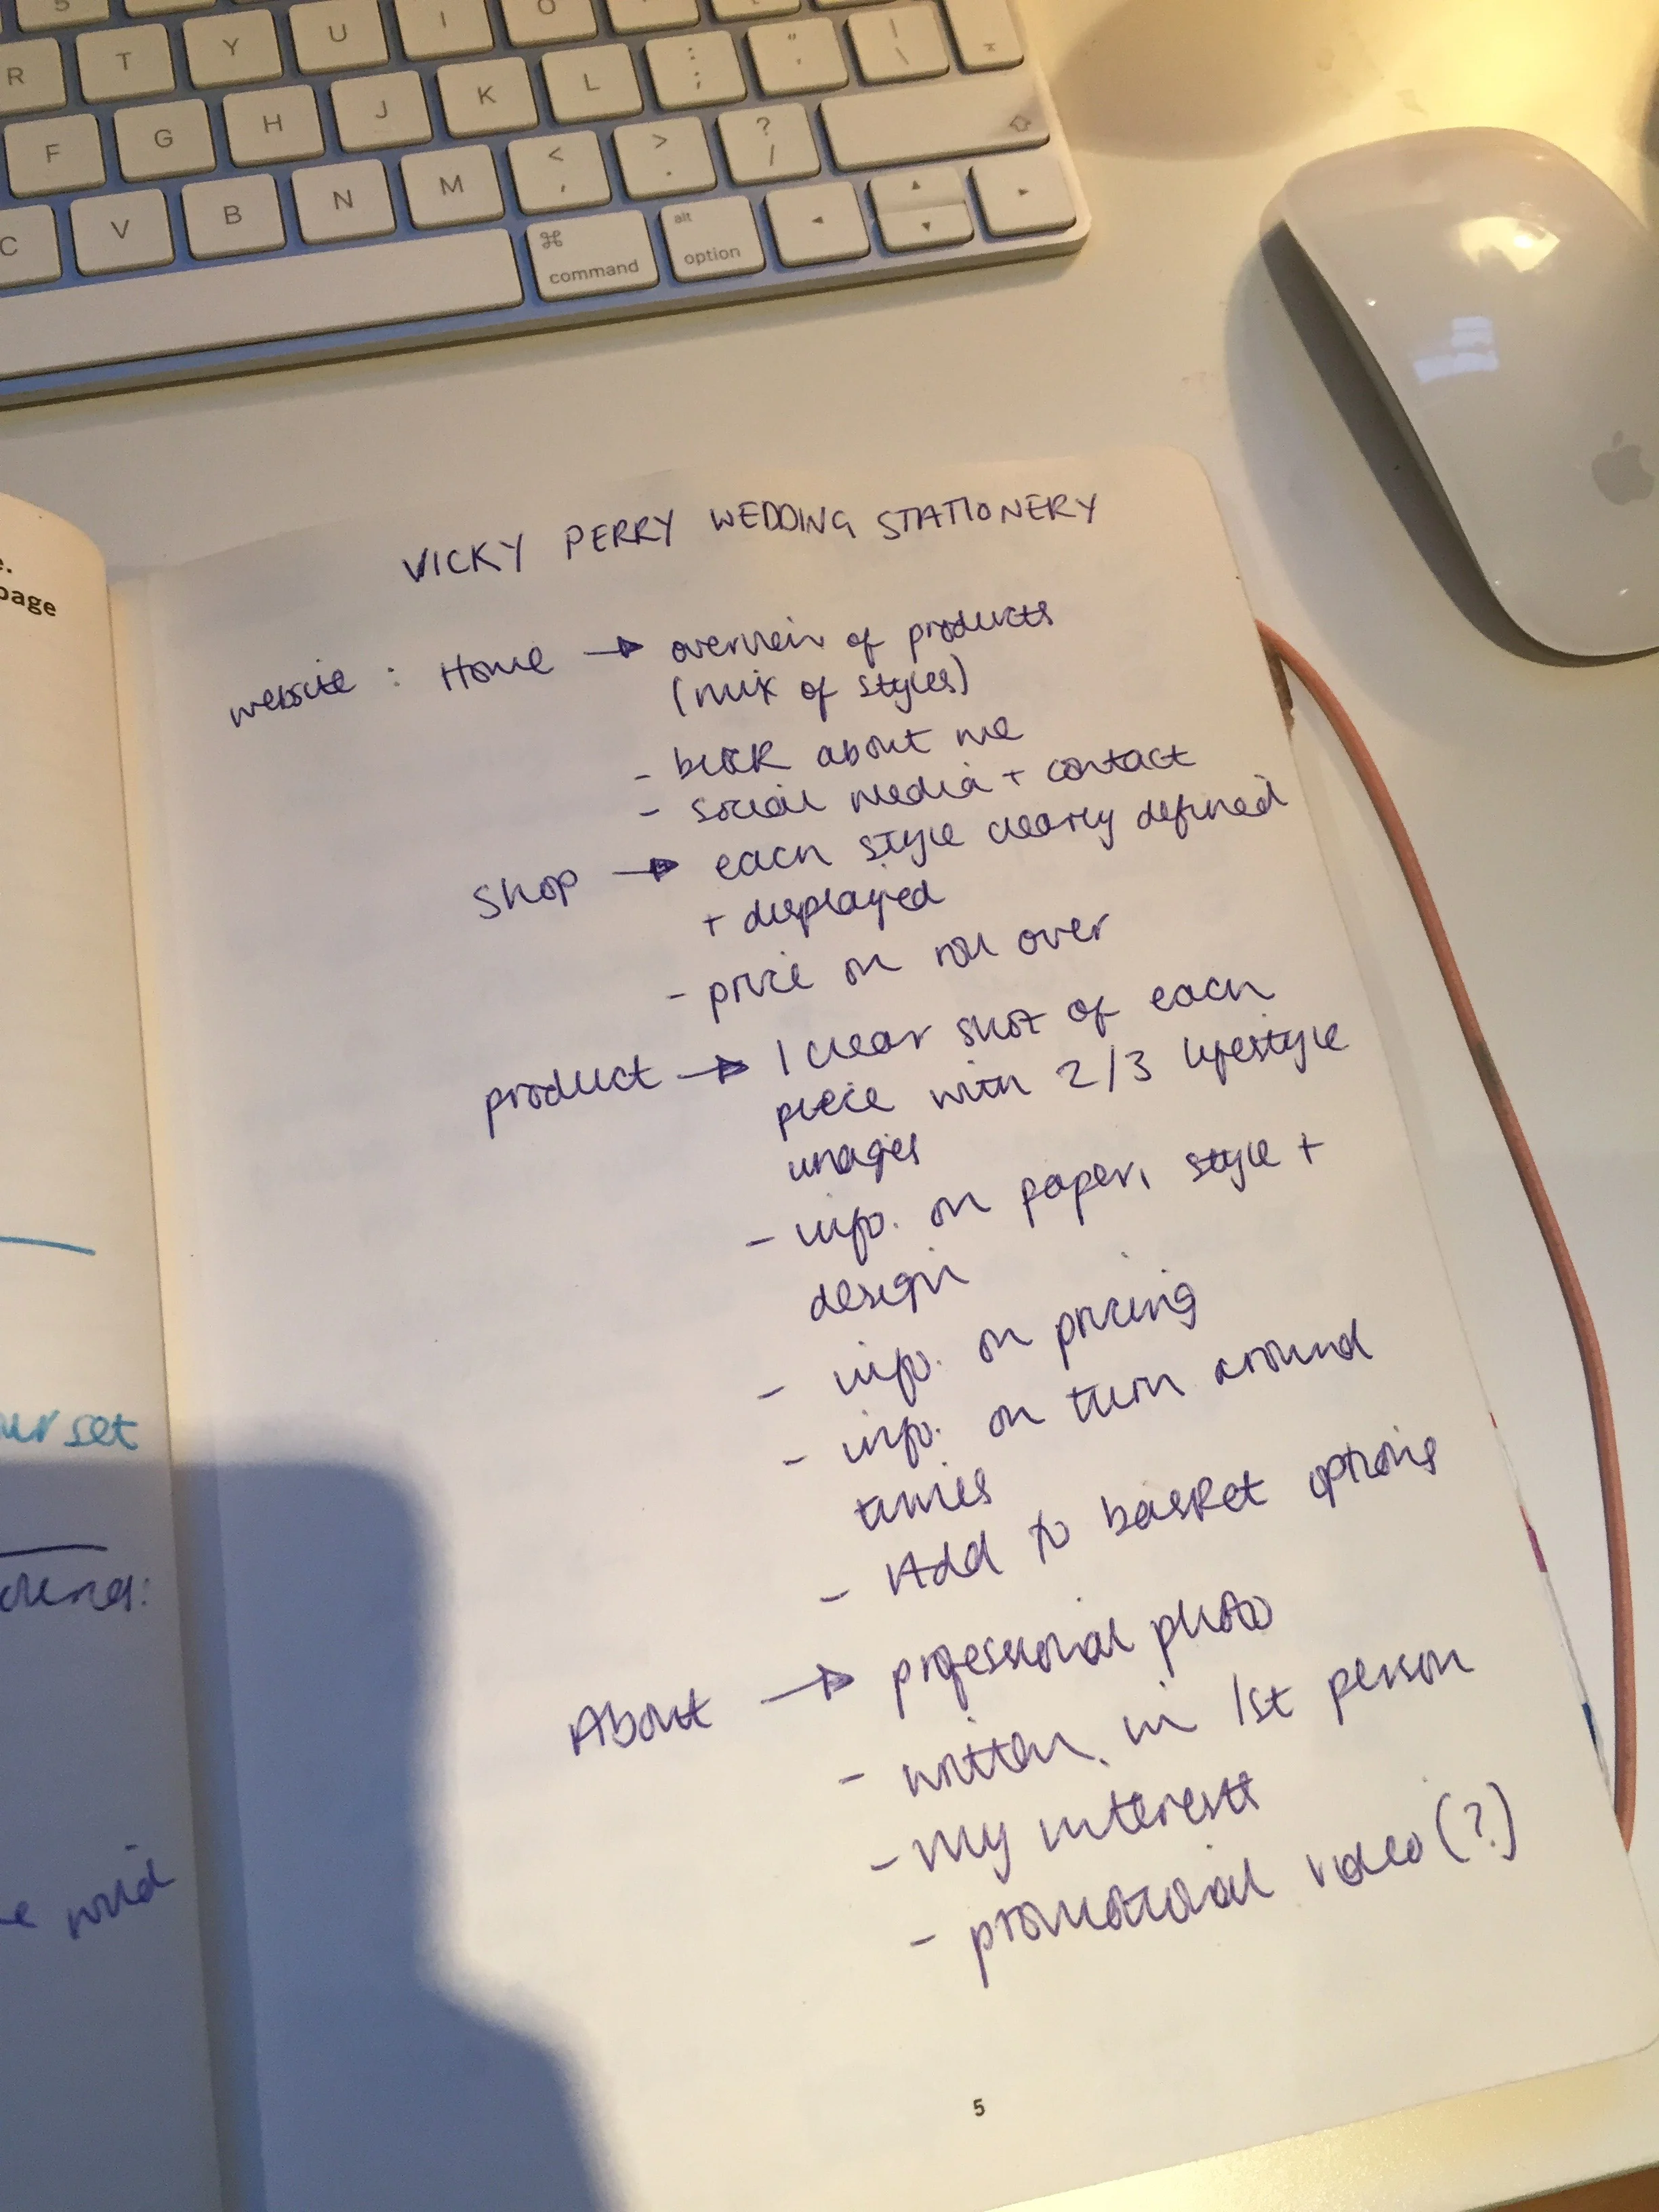 5
R T Y U I O
F G H J K L : ; " ' | \
C V B N M < , > . ? /
⌘ command alt option
page
ur set
VICKY PERRY WEDDING STATIONERY
website : Home → overview of products
(mix of styles)
- block about me
- social media + contact
Shop → each style clearly defined
+ displayed
- price on roll over
product → 1 clear shot of each
piece with 2/3 lifestyle
images
- info. on paper, style +
design
- info. on pricing
- info. on turn around
times
- Add to basket options
About → professional photo
- written in 1st person
- my interests
- promotional video (?)
5